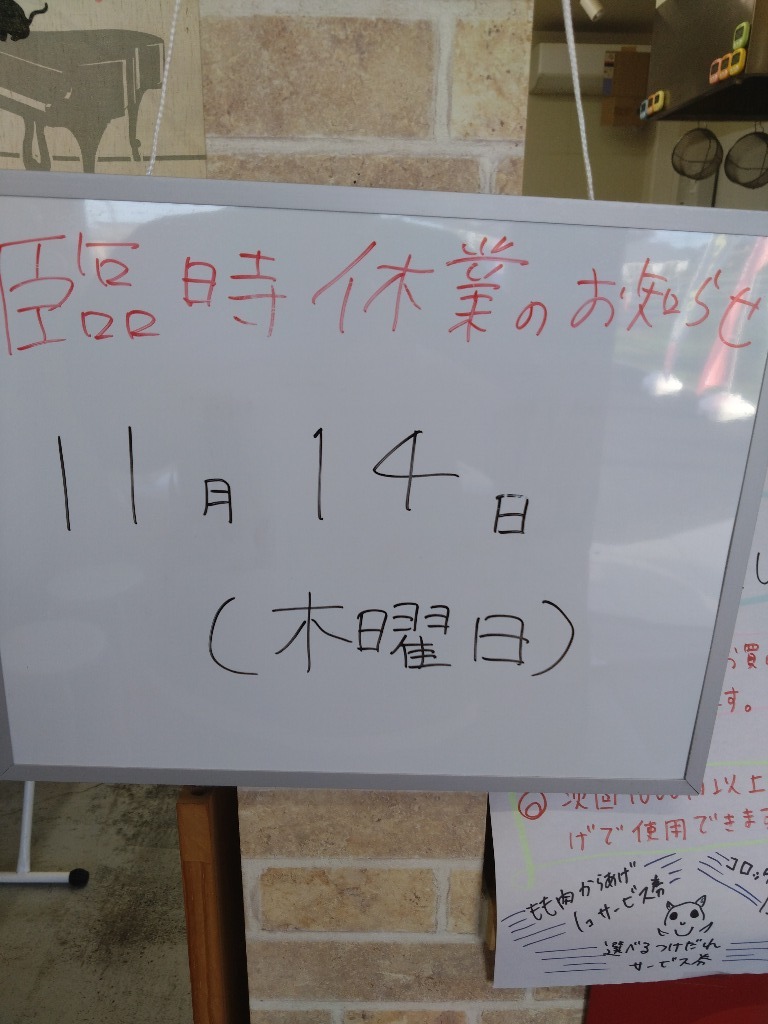 臨時休業のお知らせ
11月14日
(木曜日)
お買
す。
⑥ 次回1000円以上
げで使用できます
もも肉からあげ
1コサービス券
コロッケ
選べるつけだれ
サービス券